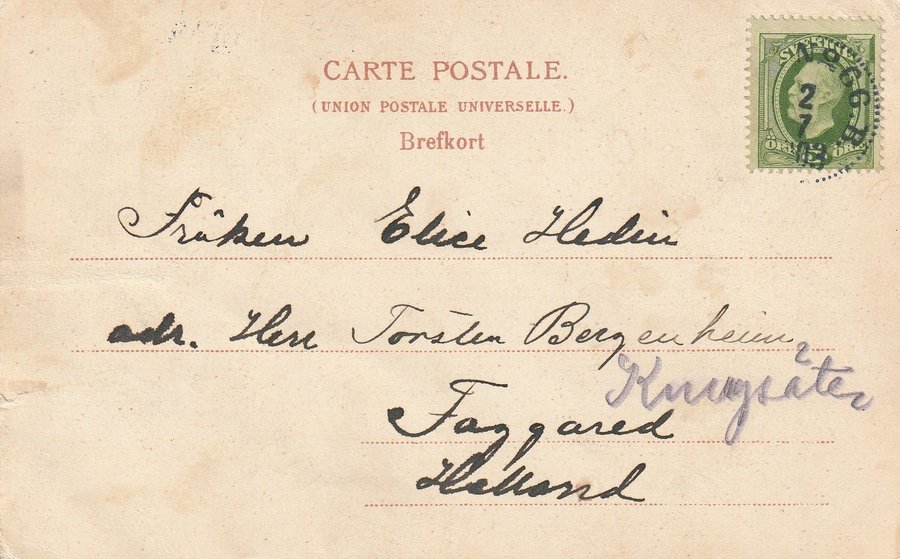 CARTE POSTALE.
(UNION POSTALE UNIVERSELLE.)
Brefkort
SVERIGE
2
7
03
Fröken Elice Hedin
adr. Herr Torsten Bergenheim
Kungsäter
Faggared
Halland